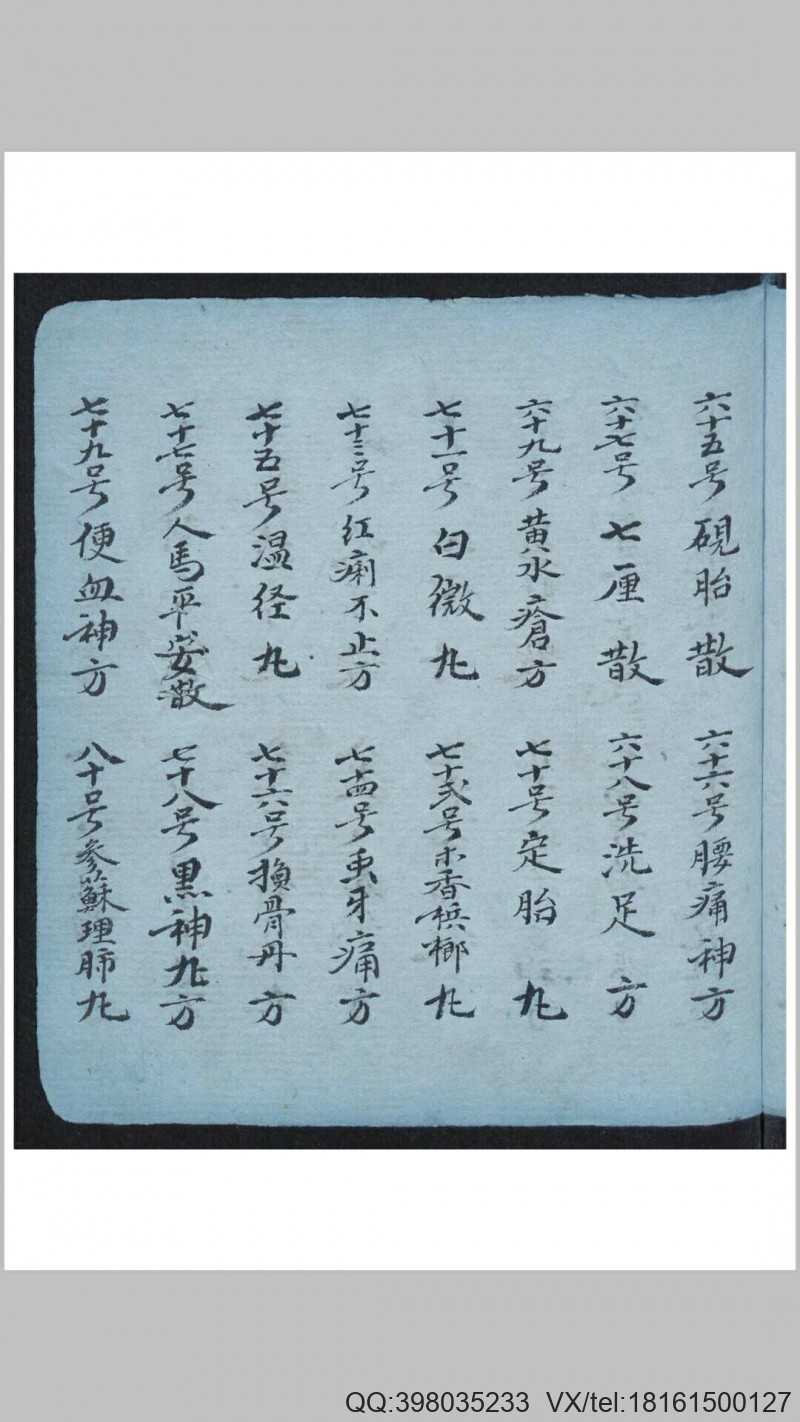 六十五号 硯胎散 六十六号 腰痛神方
六十七号 七厘散 六十八号 洗足方
六十九号 黄水瘡方 七十号 定胎丸
七十一号 白微丸 七十弍号 木香槟榔丸
七十三号 红痢不止方 七十四号 虫牙痛方
七十五号 温经丸 七十六号 换骨丹方
七十七号 人馬平安散 七十八号 黑神丸方
七十九号 便血神方 八十号 参蘇理肺丸
QQ:398035233 VX/tel:18161500127